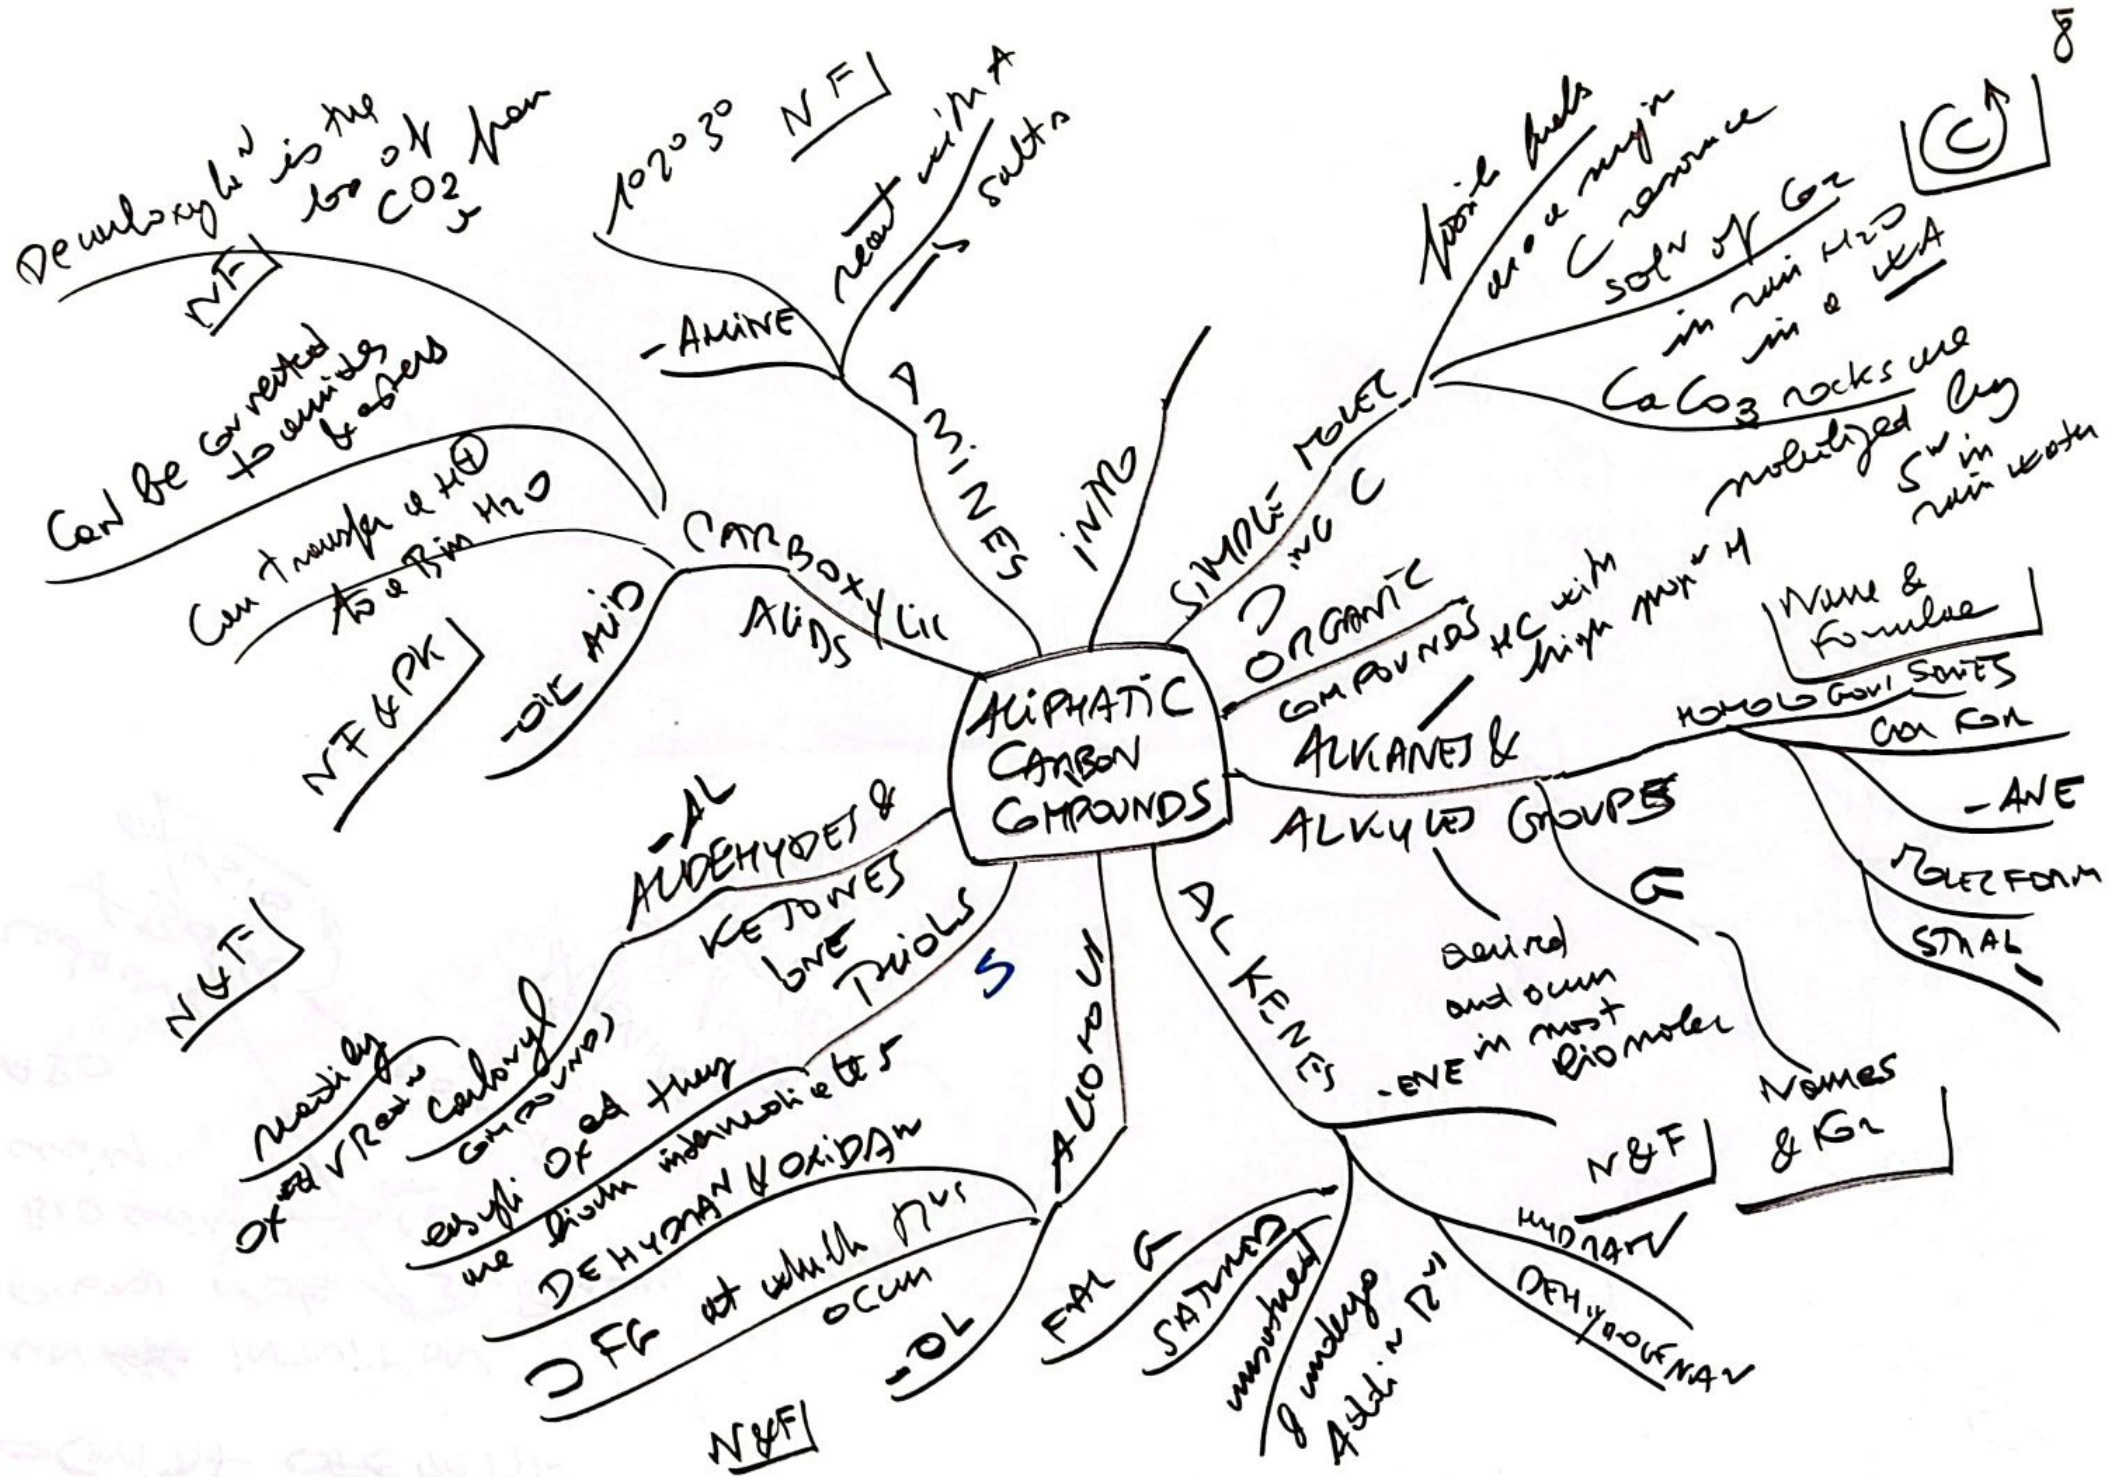 8
C
ALIPHATIC
CARBON
COMPOUNDS
INTRO
SIMPLE MOLEC
INC C
fossile fuels
are a major
C resource
SOLN of CO2
in rain H2O
in a WA
CaCO3 rocks are
mobilized by
in
rain water
ORGANIC
COMPOUNDS
HC with
high H
ALKANES &
ALKYLES GROUPES
HOMOLOGOUS SERIES
Name &
Formulae
GEN FOR
-ANE
MOLEC FORM
STRAL
G
Names
& FOR
and occur
in most
Biomolec
ALKENES
-ENE
N&F
HYDRAN
DEHYDROGENAN
unsatured
& undergo
Additn Rns
SATURED
FAL G
ALCOHOLS
-OL
N&F
FG at which Rns
occur
DEHYDRAN & OXIDAN
THIOLS
S
easyli Oxed they
are biochm intermediates
ALDEHYDES &
KETONES
-AL
ONE
Carbonyl
COMPOUNDS
readily
N&F
CARBOXYLIC
ACIDS
-OIC ACID
NF & PK
Can transfer a H+
to a B in H2O
Can Be converted
to amides
& esters
NF
Decarboxyln is the
loss of
CO2 from
AMINES
-AMINE
1º 2º 3º
NF
react with A
salts